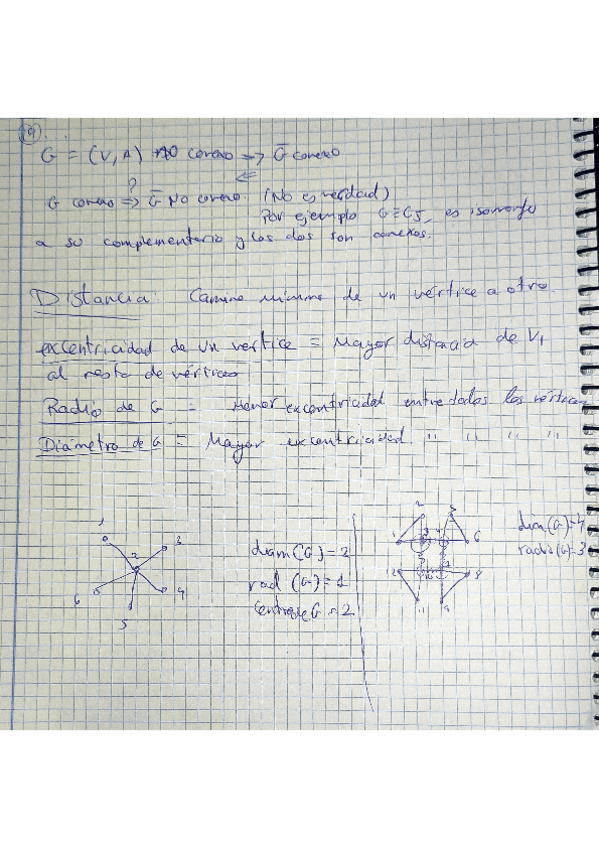 G = (V, A) no conexo => G̅ conexo
<=
?
G conexo => G̅ No conexo. (No es verdad)
Por ejemplo G = C5, es isomorfo
a su complementario y los dos son conexos.
Distancia: Camino mínimo de un vértice a otro
excentricidad de un vertice = Mayor distancia de V1
al resto de vértices
Radio de G = Menor excentricidad entre todos los vértices
Diámetro de G = Mayor excentricidad " " " "
1
2
3
4
5
6
diam(G) = 2
rad (G) = 1
Centro de G = 2
2
6
12
8
11
9
diam(G)=4
radio(G)=3